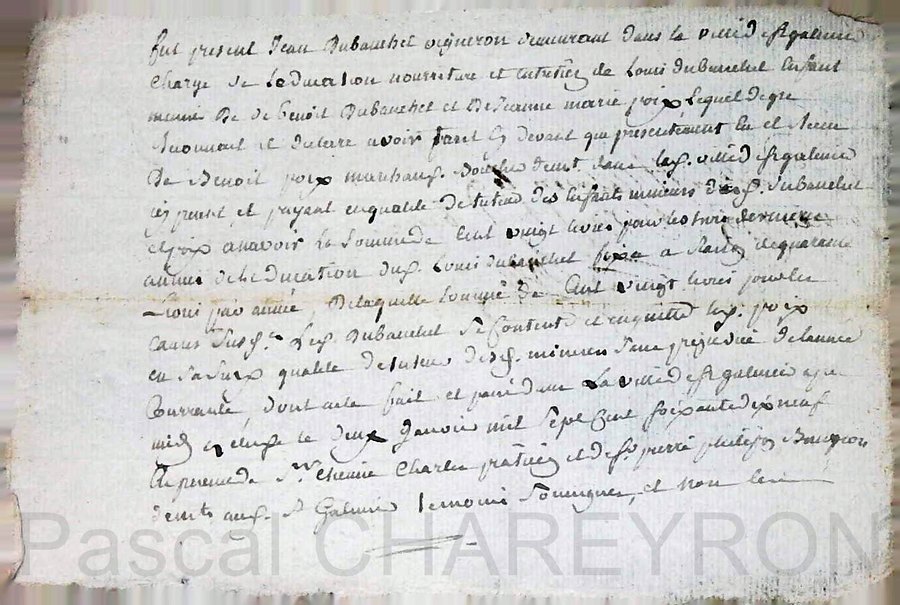 fut présent Jean Dubanchet vigneron demeurant dans la ville de St galmier
Charge de Leducation nourriture et entretien de Louis dubanchet Enfant
mineur De de benoit Dubanchet et De Jeanne marie poix Lequel de gré
Reconnait et declare avoir cy devant que presentement Eu et Receu
De Benoit poix marchand demt dans lad. ville de St galmier
icy present et payant en qualité de tuteur des Enfants mineurs dud. Dubanchet
et poix a savoir La Somme de Cent vingt livres pour les trois dernieres
années de Leducation dud. Louis dubanchet fixée a Raison de quarante
Livres par année, De laquelle Somme De Cent vingt livres pour les
causes susd. Led. Dubanchet Se Contente et en quitte led. poix
en sa qualité de tuteur desd. mineurs Sans prejudice de lannée
Courrante, dont acte fait et passé dans La ville de St galmier apres
midy le deux Janvier mil Sept Cent soixante dix neuf
En presence de Sr. Etienne Charles praticien et de Sr. pierre
demts aud. St Galmier Temoins Soussignés, et non led.
Pascal CHAREYRON